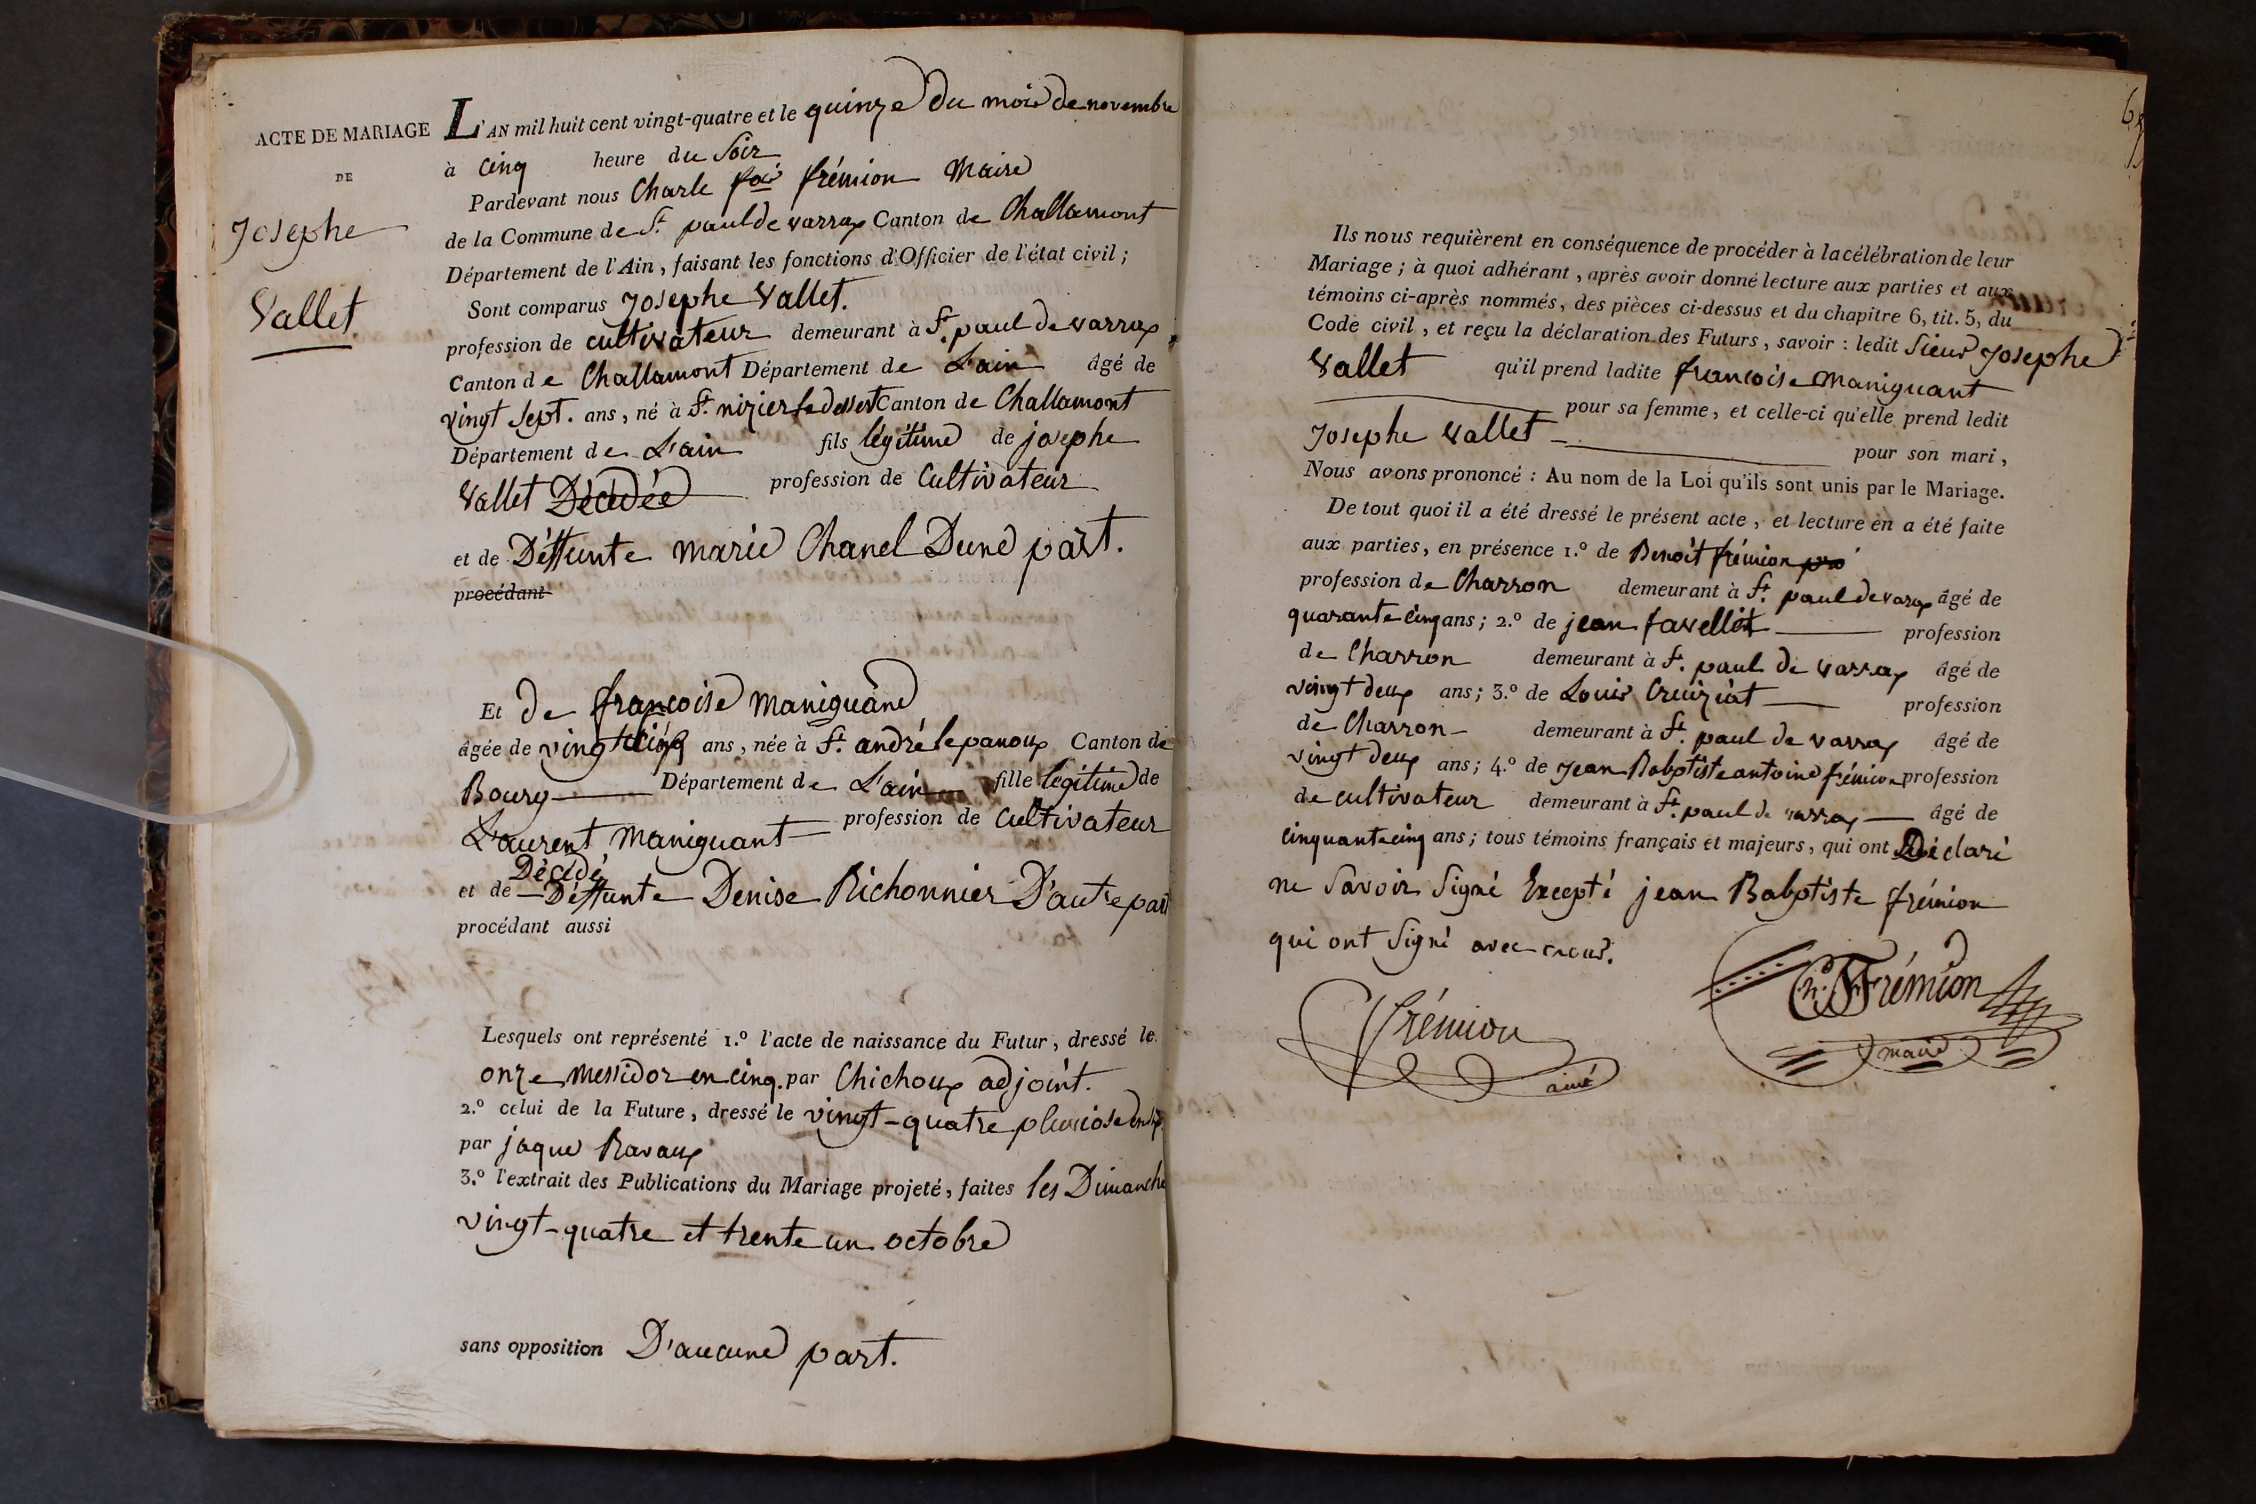 ACTE DE MARIAGE
DE
Josephe
Vallet
L'AN mil huit cent vingt-quatre et le quinze du mois de novembre
à cinq heure du soir
Pardevant nous Charle fois frémion Maire
de la Commune de St. paul de varrax Canton de Challamont
Département de l'Ain, faisant les fonctions d'Officier de l'état civil;
Sont comparus Josephe Vallet.
profession de cultivateur demeurant à St. paul de varrax
Canton de Challamont Département de L'ain âgé de
vingt sept. ans, né à St. nizier le dessert Canton de Challamont
Département de L'ain fils légitime de josephe
Vallet Décédée profession de Cultivateur
et de Deffunte marie Chanel Dune part.
procédant
Et de francoise maniguand
âgée de vingt cinq ans, née à St. andré le panoux Canton de
Bourg Département de L'ain fille légitime de
Laurent Maniguant profession de Cultivateur
Décédé
et de Deffunte Denise Richonnier D'autre part
procédant aussi
Lesquels ont représenté 1.º l'acte de naissance du Futur, dressé le
onze Messidor en cinq. par Chichoux adjoint.
2.º celui de la Future, dressé le vingt-quatre pluviose
par jaque Ravaux
3.º l'extrait des Publications du Mariage projeté, faites les Dimanche
vingt-quatre et trente un octobre
sans opposition D'aucune part.
Ils nous requièrent en conséquence de procéder à la célébration de leur
Mariage; à quoi adhérant, après avoir donné lecture aux parties et aux
témoins ci-après nommés, des pièces ci-dessus et du chapitre 6, tit. 5, du
Code civil, et reçu la déclaration des Futurs, savoir: ledit Sieur Josephe
Vallet qu'il prend ladite francoise Maniguant
pour sa femme, et celle-ci qu'elle prend ledit
Josephe Vallet pour son mari,
Nous avons prononcé: Au nom de la Loi qu'ils sont unis par le Mariage.
De tout quoi il a été dressé le présent acte, et lecture en a été faite
aux parties, en présence 1.º de Benoit frémion pro
profession de Charron demeurant à St. paul de varax âgé de
quarante cinq ans; 2.º de jean favellet profession
de Charron demeurant à St. paul de varrax âgé de
vingt deux ans; 3.º de Louis Cruiziat profession
de Charron demeurant à St. paul de varrax âgé de
vingt deux ans; 4.º de Jean Babptiste antoine frémion profession
de cultivateur demeurant à St. paul de varrax âgé de
cinquante cinq ans; tous témoins français et majeurs, qui ont Déclaré
ne Savoir Signé Excepté jean Babptiste frémion
qui ont Signé avec nous.
frémion
ainé
Frémion
maire